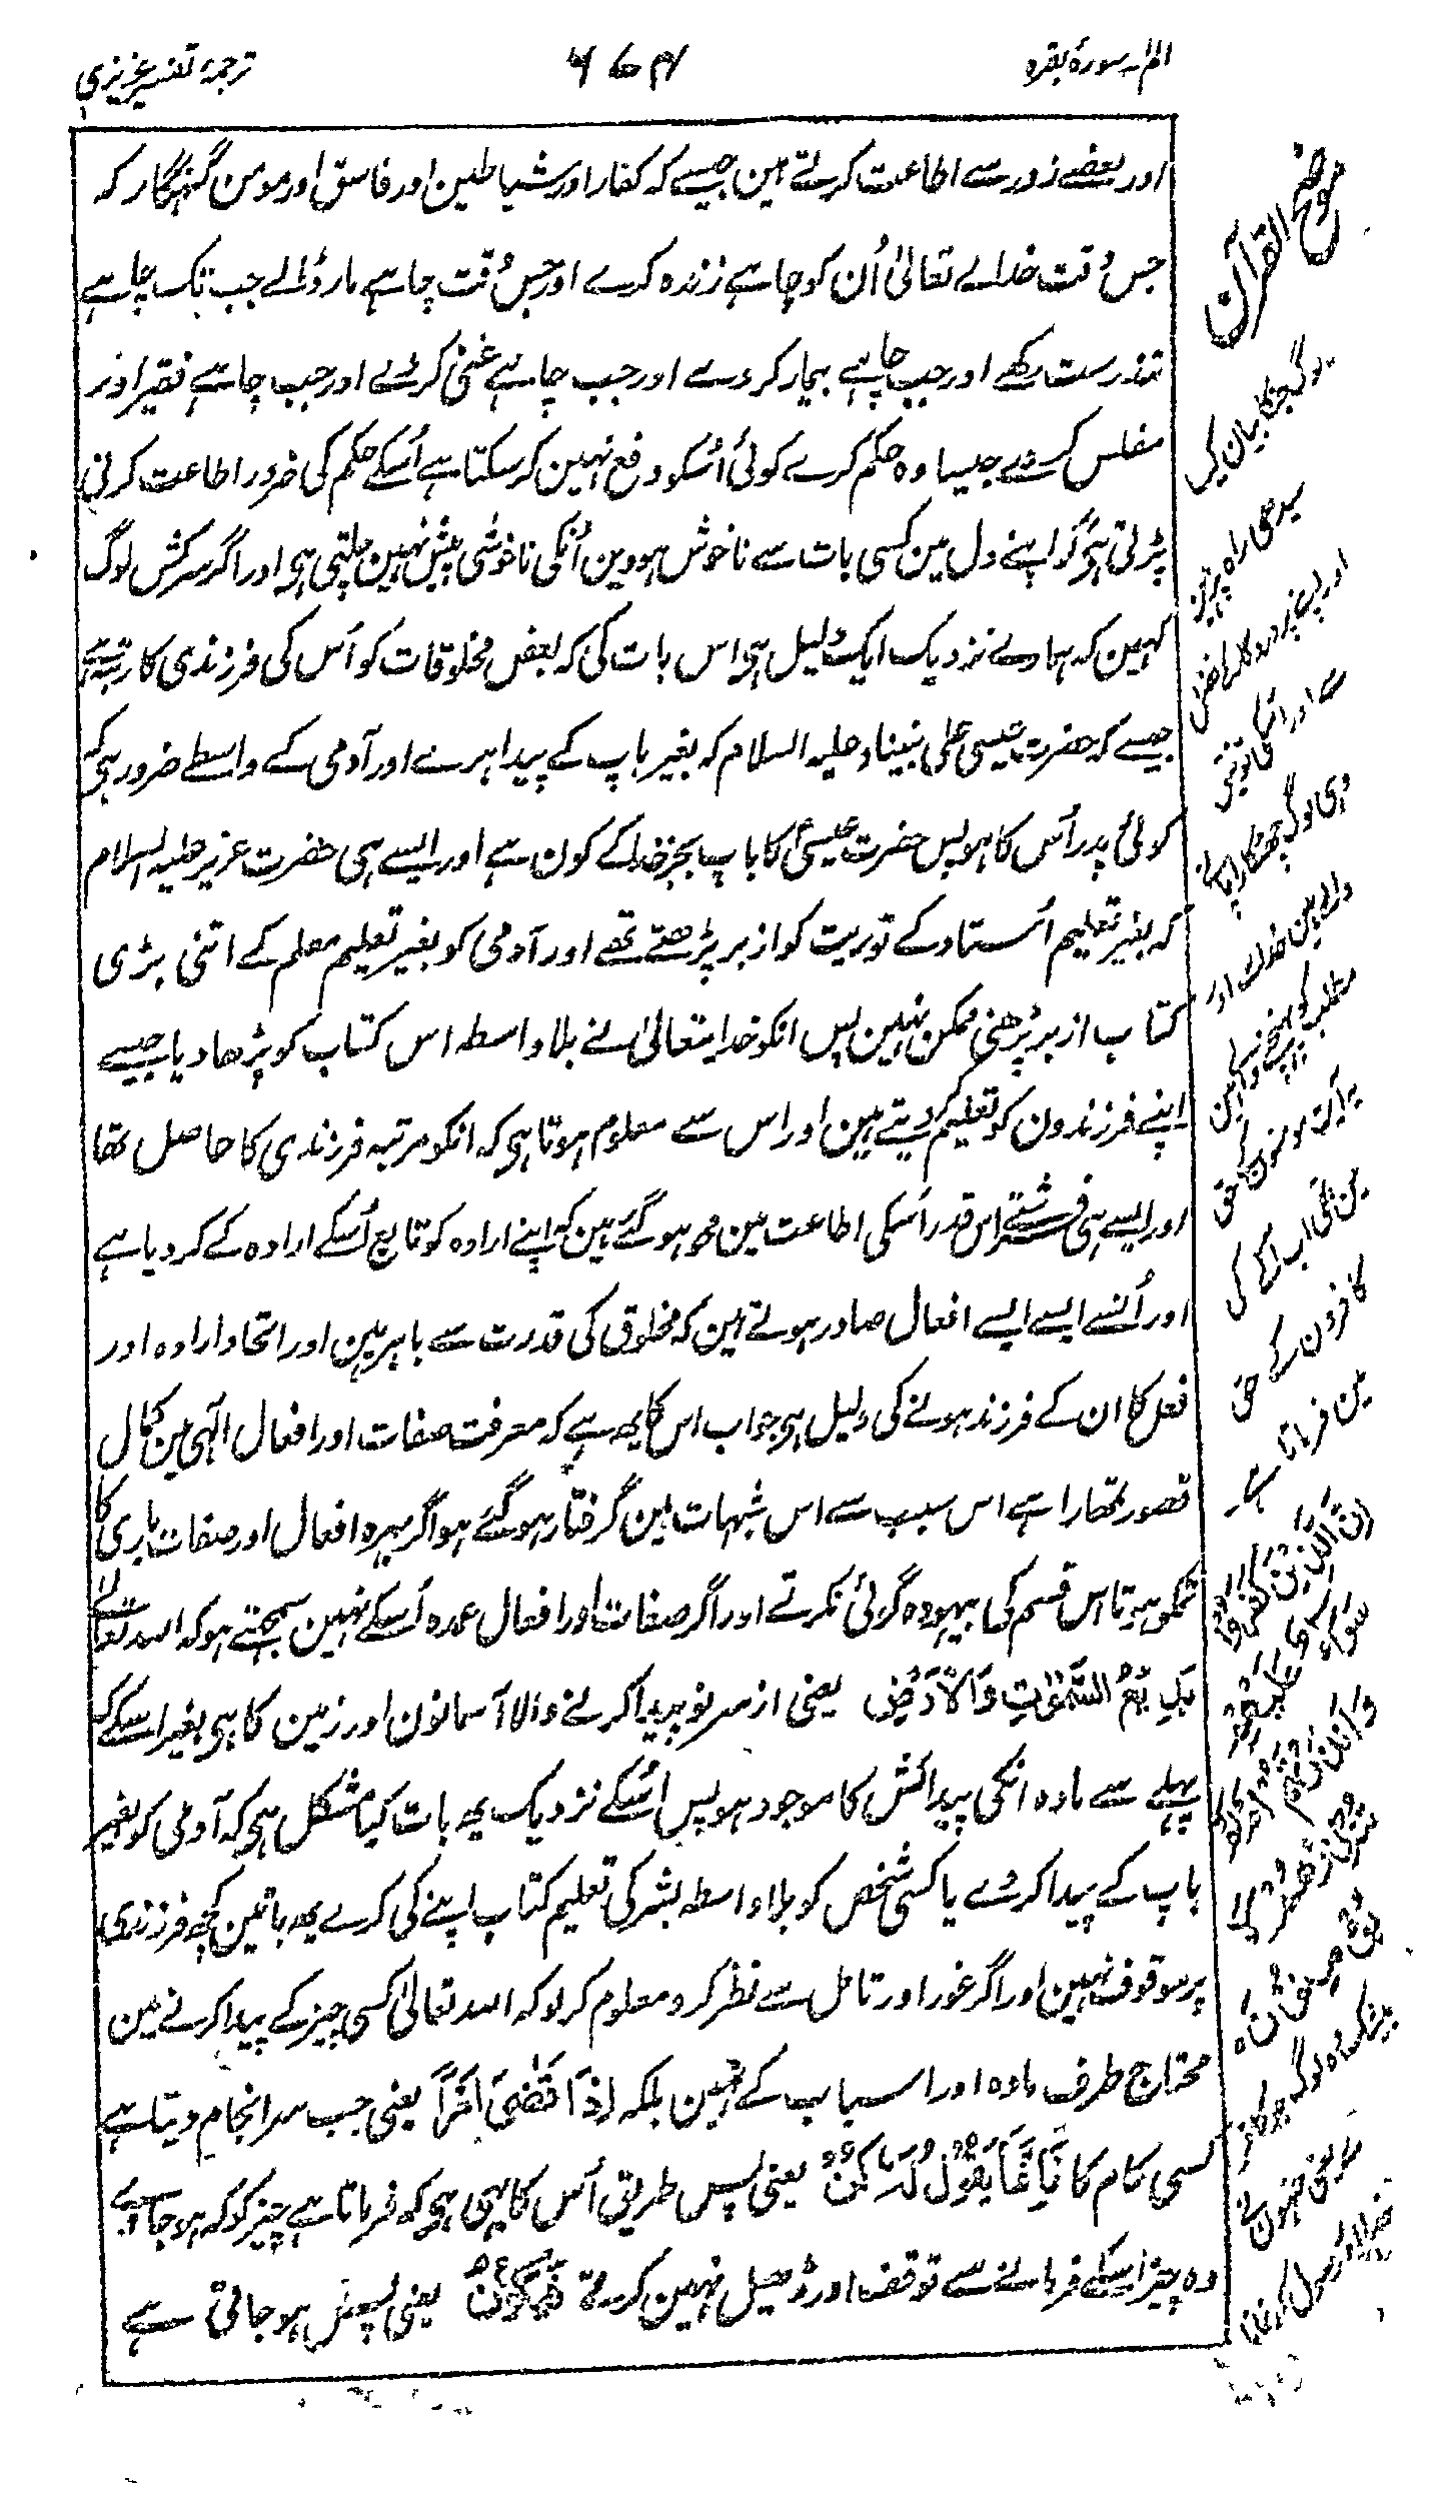 الم۔ سورۂ بقرہ
۷۶۴
ترجمۂ تفسیر عزیزی
اور بعضے زور سے اطاعت کرتے ہین جیسے کہ کفار اور شیاطین اور فاسق اور مومن گنہگار کہ
جس وقت خدائے تعالیٰ اُن کو چاہے زندہ کرے اور جس وقت چاہے مار ڈالے جب تک چاہے
تندرست رکھے اور جب چاہے بیمار کر دے اور جب چاہے غنی کر دے اور جب چاہے فقیر اور
مفلس کر دے جیسا وہ حکم کرے کوئی اُسکو دفع نہین کر سکتا ہے اُسکے حکم کی ضرور اطاعت کرنی
پڑتی ہی گو اپنے دل مین کسی بات سے ناخوش ہووین اُنکی ناخوشی پیش نہین چلتی ہی اور اگر سرکش لوگ
کہین کہ ہمارے نزدیک ایک دلیل ہی اس بات کی کہ بعض مخلوقات کو اُس کی فرزندی کا رتبہ ہے
جیسے کہ حضرت عیسی علی نبینا و علیہ السلام کہ بغیر باپ کے پیدا ہوے اور آدمی کے واسطے ضرور ہی کہ
کوئی پدر اُس کا ہو پس حضرت عیسیٰ کا باپ بجز خدا کے کون ہے اور ایسے ہی حضرت عزیر علیہ السلام
کہ بغیر تعلیم اُستاد کے توریت کو از بر پڑھتے تھے اور آدمی کو بغیر تعلیم معلم کے اتنی بڑی
کتاب از بر پڑھنی ممکن نہین پس انکو خدایتعالیٰ نے بلا واسطہ اس کتاب کو پڑھا دیا جیسے
اپنے فرزندون کو تعلیم کر دیتے ہین اور اس سے معلوم ہوتا ہی کہ انکو مرتبہ فرزندی کا حاصل تھا
اور ایسے ہی فرشتے اس قدر اُسکی اطاعت مین محو ہو گئے ہین کہ اپنے ارادہ کو تابع اُسکے ارادہ کے کر دیا ہے
اور اُنسے ایسے ایسے افعال صادر ہوتے ہین کہ مخلوق کی قدرت سے باہر ہین اور اتحاد ارادہ اور
فعل کا ان کے فرزند ہونے کی دلیل ہی جواب اس کا یہ ہے کہ معرفت صفات اور افعال الٰہی مین کمال
قصور تمھارا ہے اس سبب سے اس شبہات مین گرفتار ہو گئے ہو اگر بہرہ افعال اور صفات باری کا
تمکو ہوتا اس قسم کی بیہودہ گوئی نکرتے اور اگر صفات اور افعال عمدہ اُسکے نہین سمجھتے ہو کہ اللہ تعالیٰ
بَدِیْعُ السَّمٰوٰتِ وَالْاَرْضِ یعنی از سر نو پیدا کرنے والا آسمانون اور زمین کا ہی بغیر اسکے کہ
پہلے سے مادہ انکی پیدائش کا موجود ہو پس اُسکے نزدیک یہ بات کیا مشکل ہی کہ آدمی کو بغیر
باپ کے پیدا کر دے یا کسی شخص کو بلا واسطہ بشر کی تعلیم کتاب اپنے کی کرے یہ باتین کچھ فرزندی
پر موقوف نہین اور اگر غور اور تامل سے نظر کرو معلوم کر لو کہ اللہ تعالیٰ کسی چیز کے پیدا کرنے مین
محتاج طرف مادہ اور اسباب کے نہین بلکہ اِذَا قَضٰی اَمْرًا یعنی جب سر انجام دیتا ہے
کسی کام کا فَاِنَّمَا یَقُوْلُ لَہٗ کُنْ یعنی پس طریق اُس کا یہی ہی کہ فرماتا ہے چیز کو کہ ہو جا
وہ چیز اسکے فرمانے سے توقف اور ڈھیل نہین کرتی فَیَکُوْنُ یعنی پس ہو جاتی ہے
موضح القرآن
لوگ جنکا بیان کی
سیدھی راہ پر ہین
اور اپنے پروردگار کی طرف
سے اور
وہی لوگ چھٹکارا پانے
والے ہین عذاب اور
مطلب کو پہنچنے والے ہین
یہ آیت مومنون کے حق
مین تھی اب آگے کی
کافرون کے حق
مین فرماتا ہے
اِنَّ الَّذِیْنَ کَفَرُوْا
سَوَآءٌ عَلَیْهِمْ
ءَاَنْذَرْتَهُمْ اَمْ لَمْ
تُنْذِرْهُمْ لَا
یُؤْمِنُوْنَ
بیشک وہ لوگ جو کافر